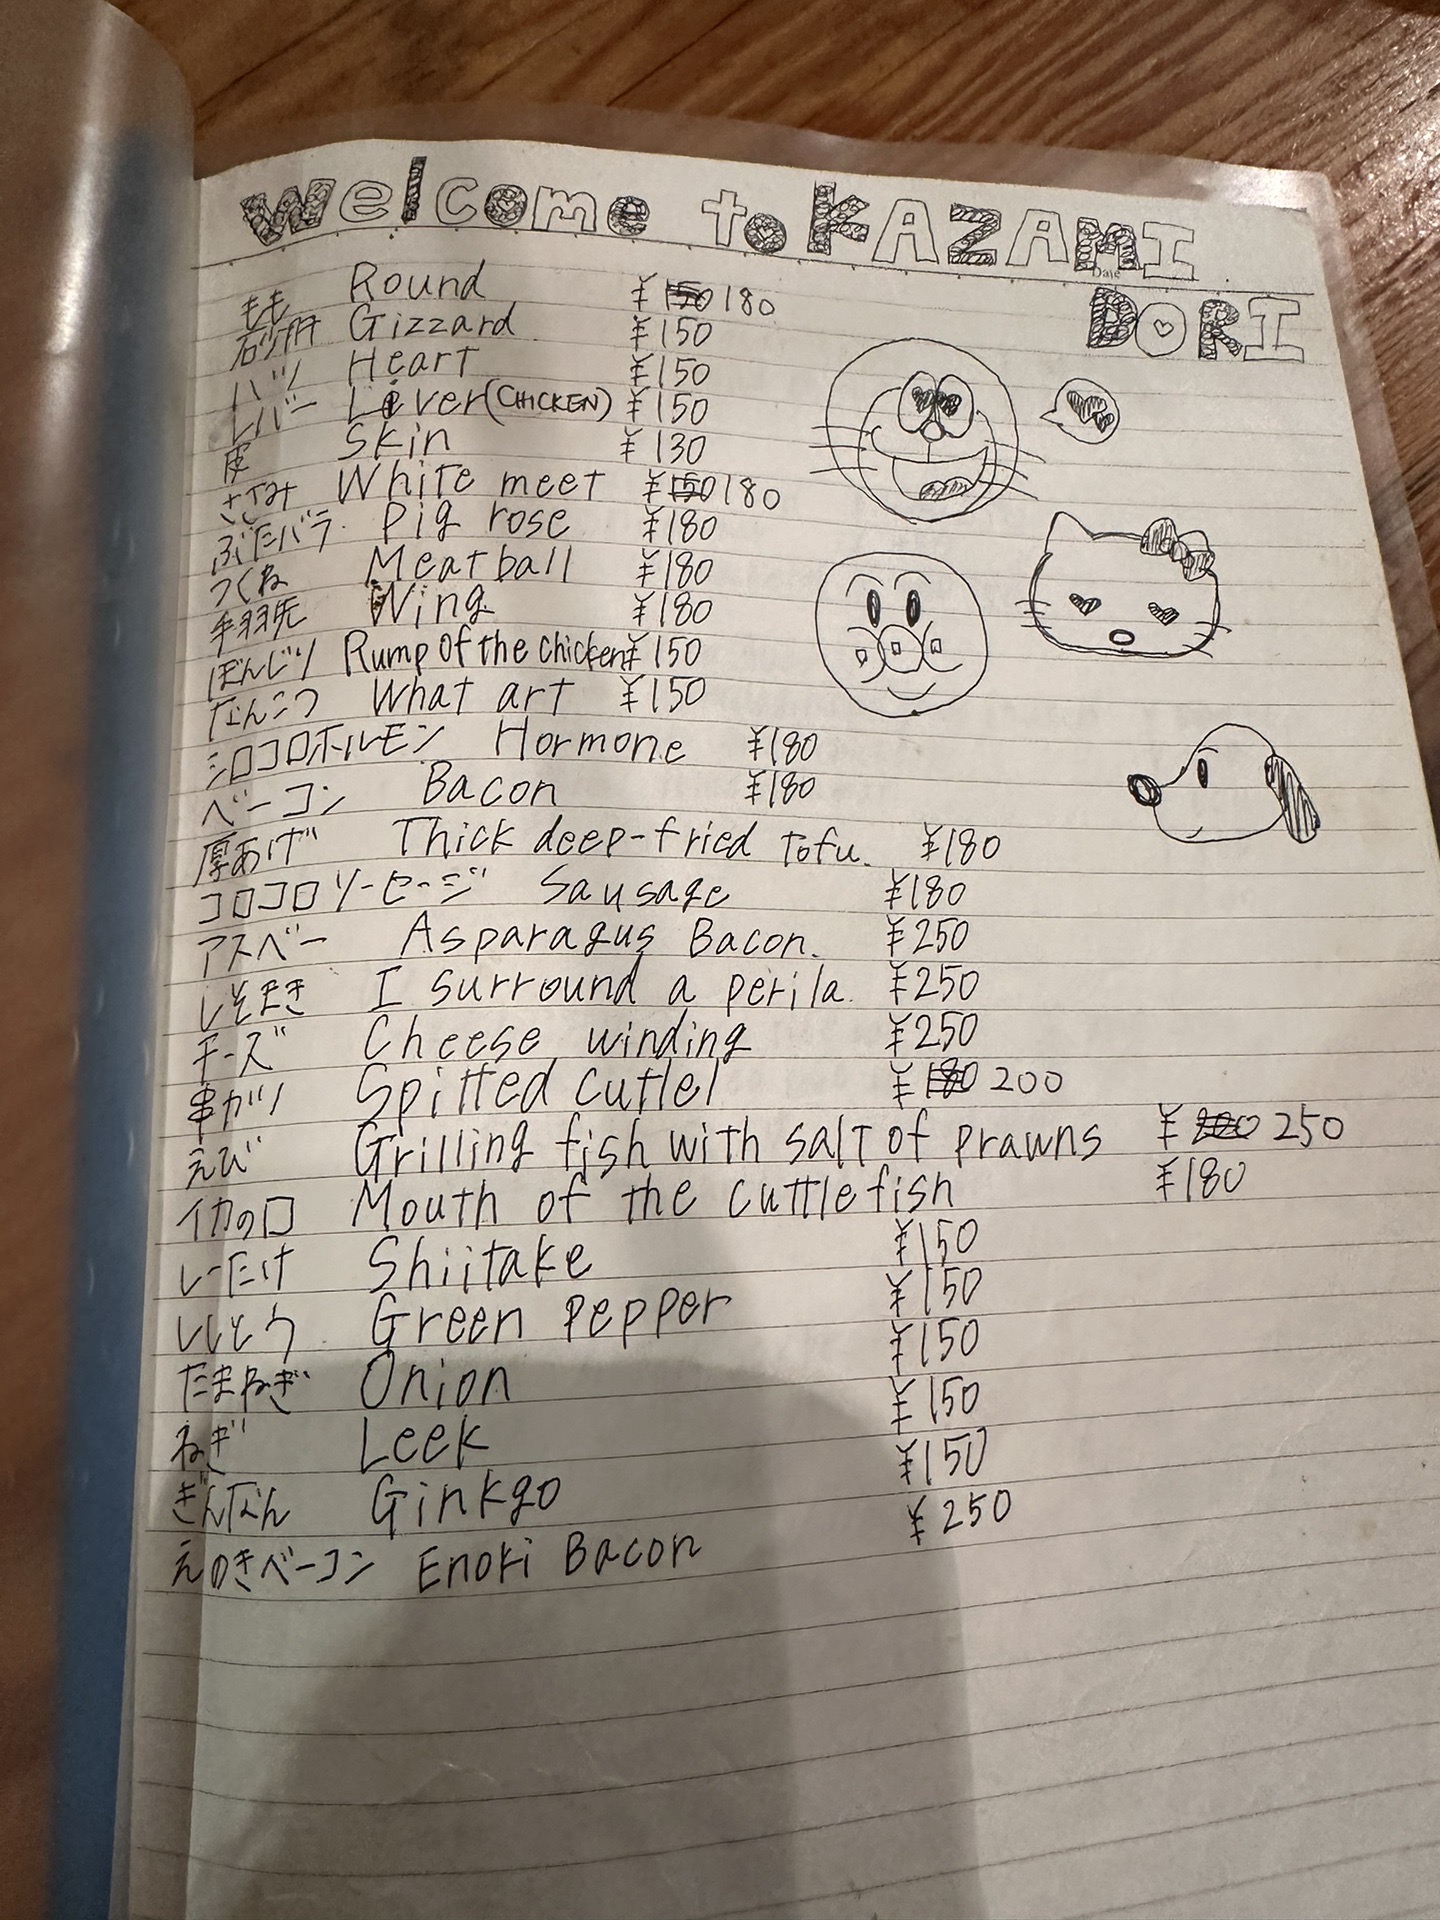 Welcome to KAZAMI
DORI
Date
もも Round ¥150 180
石ヅリ肝 Gizzard ¥150
ハツ Heart ¥150
レバー Liver (CHICKEN) ¥150
皮 Skin ¥130
ささみ White meet ¥150 180
ぶたバラ Pig rose ¥180
つくね Meatball ¥180
手羽先 Wing ¥180
ぼんじり Rump of the chicken ¥150
なんこつ What art ¥150
シロコロホルモン Hormone ¥180
ベーコン Bacon ¥180
厚あげ Thick deep-fried Tofu. ¥180
コロコロソーセージ Sausage ¥180
アスベー Asparagus Bacon. ¥250
しそまき I surround a perila. ¥250
チーズ Cheese winding ¥250
串カツ Spitted cutlel ¥180 200
えび Grilling fish with salt of prawns ¥200 250
イカの口 Mouth of the cuttlefish ¥180
しーたけ Shiitake ¥150
ししとう Green pepper ¥150
たまねぎ Onion ¥150
ねぎ Leek ¥150
ぎんなん Ginkgo ¥150
えのきベーコン Enoki Bacon ¥250